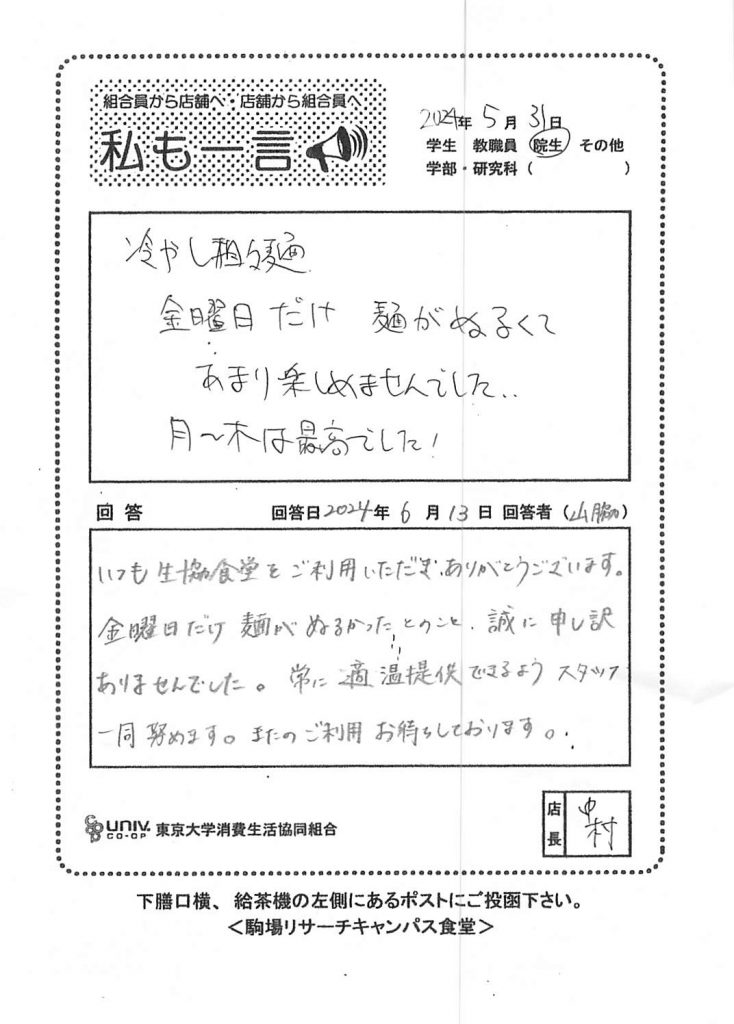 組合員から店舗へ・店舗から組合員へ
私も一言
2024年 5月 31日
学生 教職員 院生 その他
学部・研究科（ ）
冷やし担々麺
金曜日だけ 麺がぬるくて
あまり楽しめませんでした..
月～木は最高でした！
回答 回答日2024年 6月 13日 回答者（山脇）
いつも生協食堂をご利用いただき、ありがとうございます。
金曜日だけ 麺がぬるかったとのこと、誠に申し訳
ありませんでした。常に適温提供できるようスタッフ
一同努めます。またのご利用お待ちしております。
UNIV. CO-OP 東京大学消費生活協同組合
店長 中村
下膳口横、給茶機の左側にあるポストにご投函下さい。
＜駒場リサーチキャンパス食堂＞